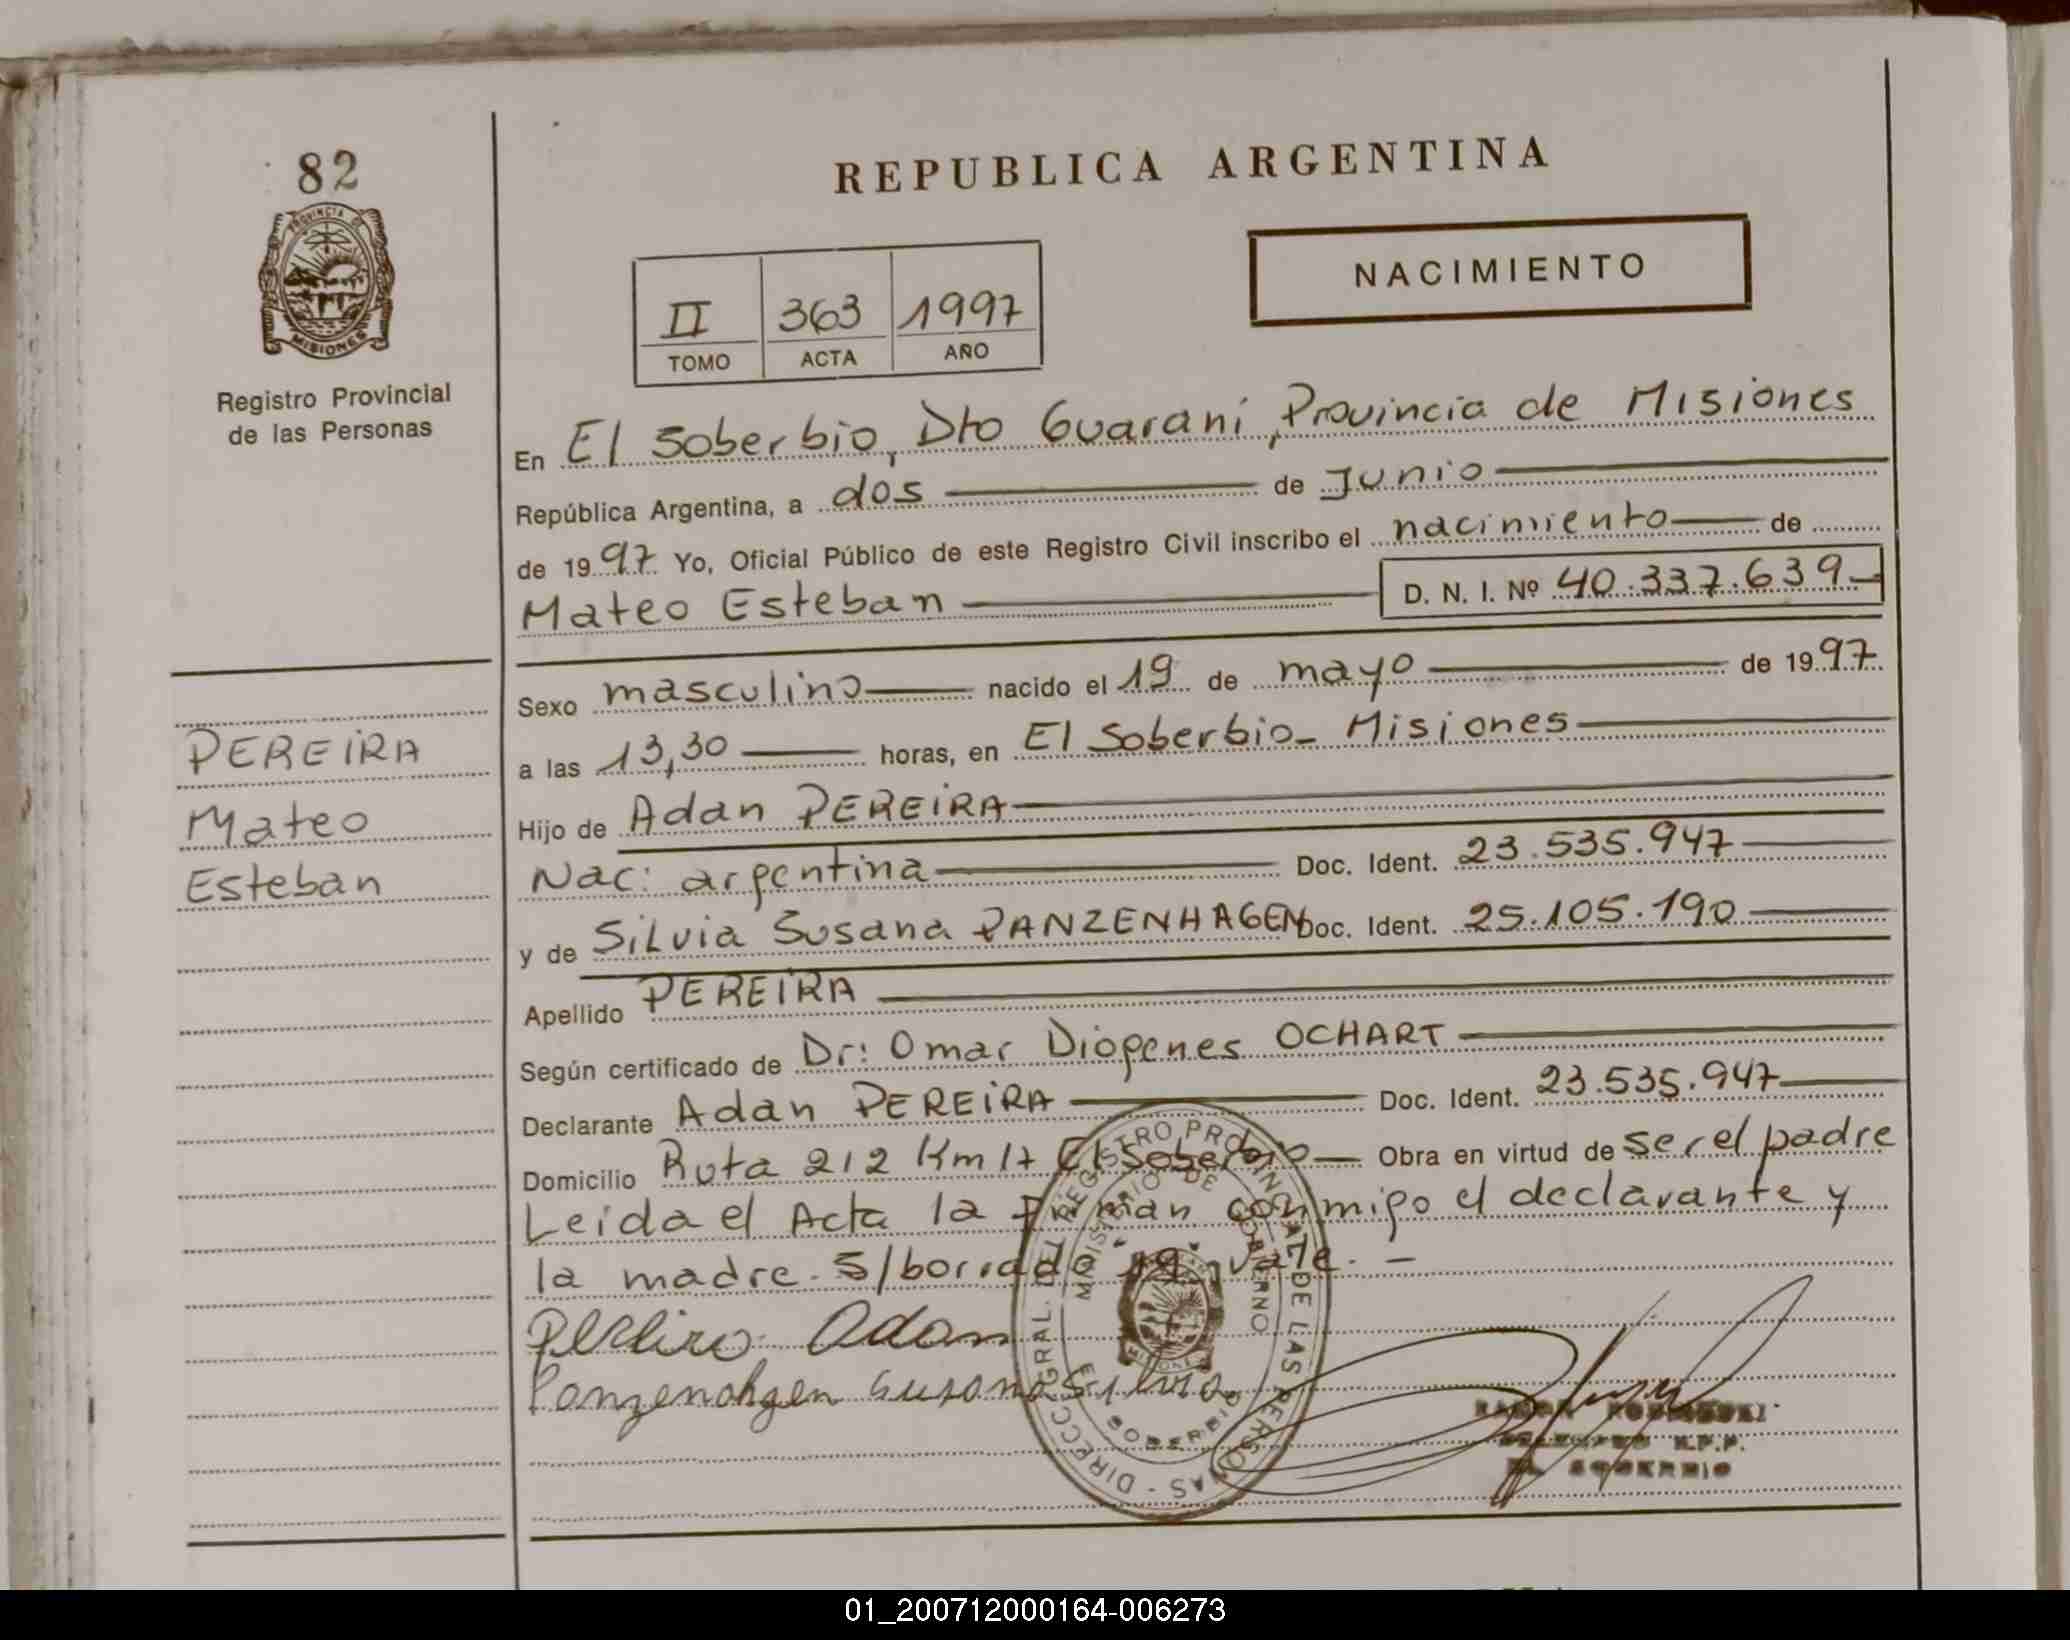 82
REPUBLICA ARGENTINA
PROVINCIA DE
MISIONES
Registro Provincial
de las Personas
II 363 1997
TOMO ACTA AÑO
NACIMIENTO
En El Soberbio, Dto Guaraní, Provincia de Misiones
República Argentina, a dos de Junio
de 1997 Yo, Oficial Público de este Registro Civil inscribo el nacimiento de
Mateo Esteban D. N. I. Nº 40.337.639
Sexo masculino nacido el 19 de mayo de 1997
a las 13,30 horas, en El Soberbio - Misiones
Hijo de Adan PEREIRA
Nac: argentina Doc. Ident. 23.535.947
y de Silvia Susana PANZENHAGEN Doc. Ident. 25.105.190
Apellido PEREIRA
Según certificado de Dr: Omar Diógenes OCHART
Declarante Adan PEREIRA Doc. Ident. 23.535.947
Domicilio Ruta 212 Km 17 El Soberbio Obra en virtud de ser el padre
Leida el Acta la firman conmigo el declarante y
la madre. S/borrado "19" vale. -
PEREIRA
Mateo
Esteban
Pereira Adan
Panzenahgen Susana Silvia
DIRECC. GRAL. DEL REGISTRO PROVINCIAL DE LAS PERSONAS -
MINISTERIO DE GOBIERNO
MISIONES
EL SOBERBIO
RAMON
R.P.P.
EL SOBERBIO
01_200712000164-006273